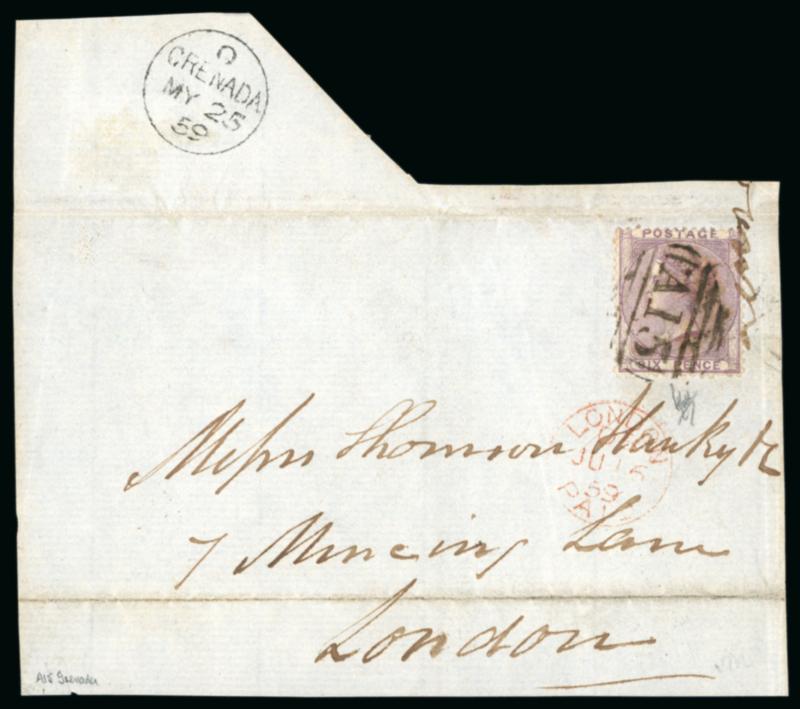 O
GRENADA
MY 25
59
POSTAGE
A15
SIX PENCE
LONDON
JU 15
59
PAI
Messrs Thomson Hanky &c
7 Mincing Lane
London
A15 Grenada